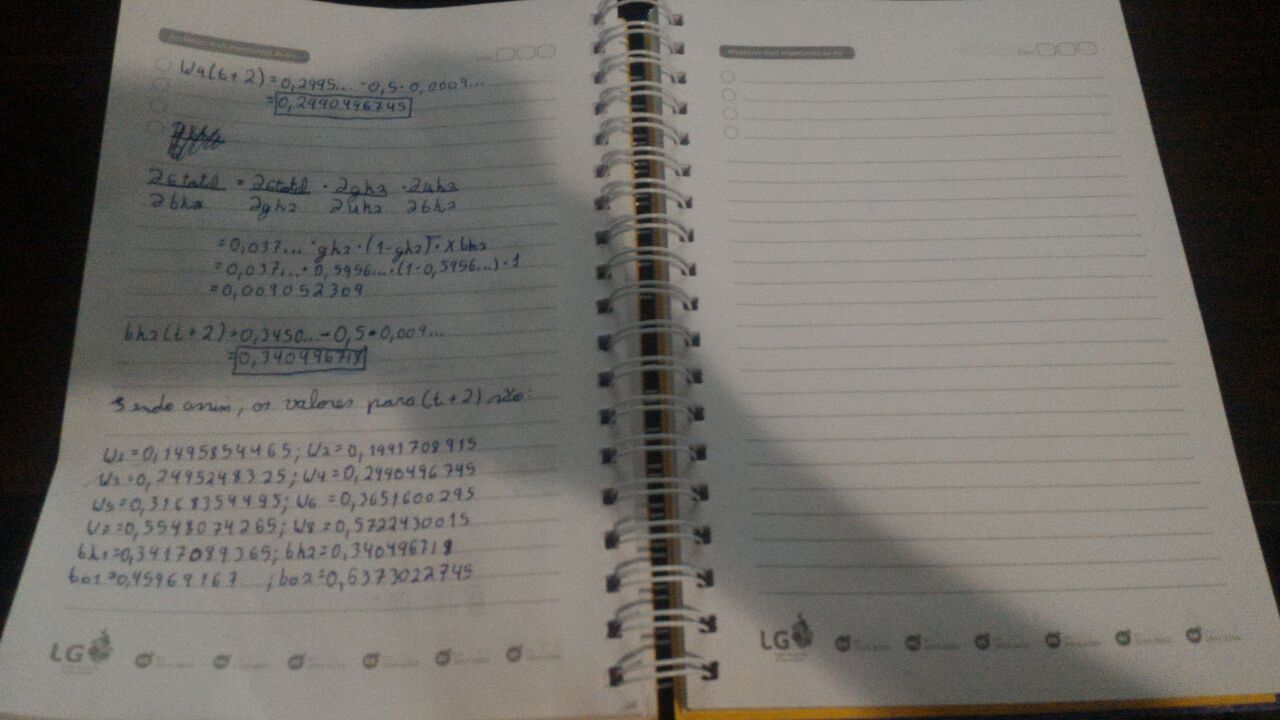 W4(t+2)=0,2995... -0,5·0,0009...
=0,2990496745
∂Etotal = ∂Etotal · ∂gh2 · ∂uh2
∂bh2 ∂gh2 ∂uh2 ∂bh2
=0,037... · gh2·(1-gh2)·Xbh2
=0,037...·0,5956...·(1-0,5956...)·1
=0,009052309
bh2(t+2)=0,3450...-0,5·0,009...
=0,340496718
Sendo assim, os valores para (t+2) são:
W1=0,1495854465; W2=0,1991708915
W3=0,2495248325; W4=0,2990496745
W5=0,3168354495; W6=0,3651600295
W7=0,5548074265; W8=0,5722430015
bh1=0,3417089365; bh2=0,340496718
bo1=0,45969167 ; bo2=0,6373022745
LG
LG